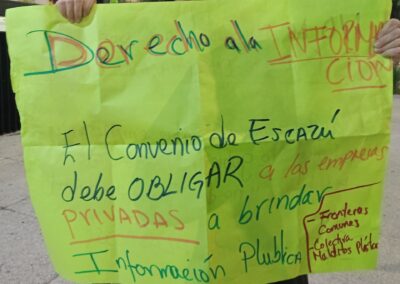 Derecho a la INFORMA
CION
El Convenio de Escazú
debe OBLIGAR a las empresas
PRIVADAS a brindar
Información Plublica
- Fronteras
Comunes
- Colectiva
Malditos Plástico